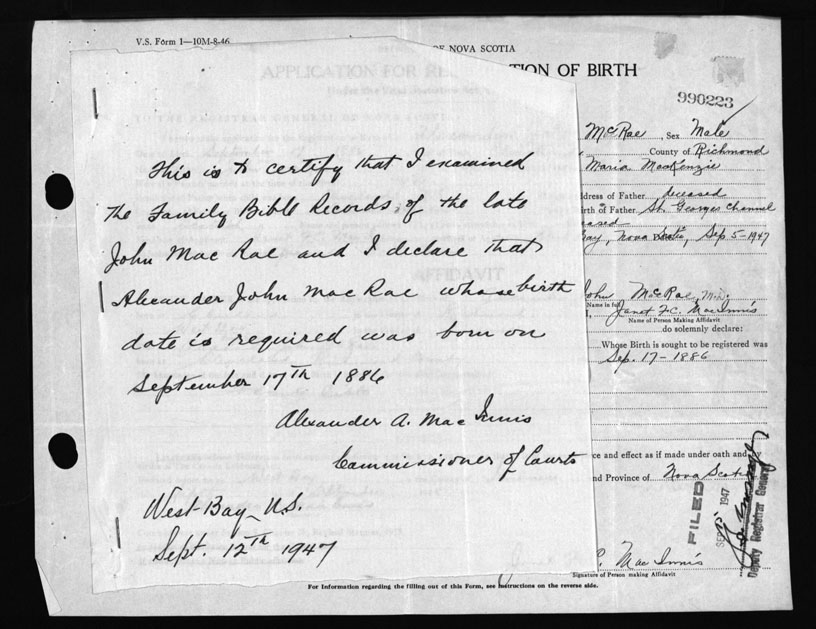 V.S. Form 1—10M-8-46
OF NOVA SCOTIA
APPLICATION FOR RE
TION OF BIRTH
990223
McRae, Sex Male
County of Richmond
Maria MacKenzie
ddress of Father deceased
irth of Father St. Georges Channel
Bay, Nova Scotia, Sep 5-1947
John McRae,
Name in full
Janet F.C. MacInnis
Name of Person Making Affidavit
do solemnly declare:
Whose Birth is sought to be registered was
Sep. 17-1886
ce and effect as if made under oath and
nd Province of Nova Scotia
FILED
SEP 15 1947
Deputy Registrar General
C. MacInnis
Signature of Person making Affidavit
For Information regarding the filling out of this Form, see instructions on the reverse side.
This is to certify that I examined
the Family Bible Records, of the late
John Mac Rae and I declare that
Alexander John MacRae whose birth
date is required was born on
September 17th 1886
Alexander A. Mac Innis
Commissioner of Courts
West Bay, N.S.
Sept. 12th 1947
AFFIDAVIT